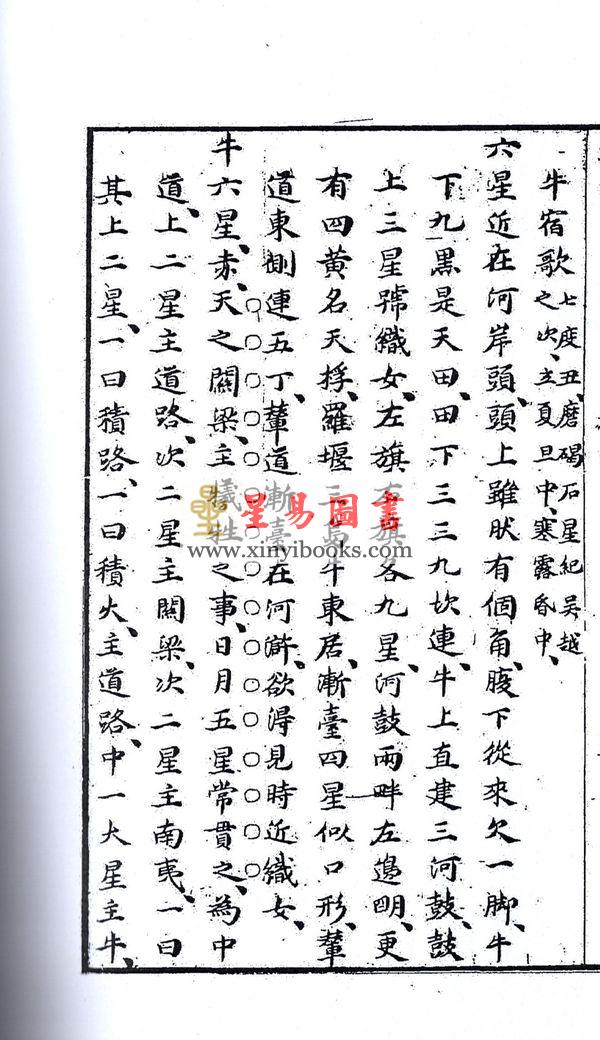 牛宿歌 七度丑、磨碣石星紀吳越
之次、立夏旦中、寒露昏中、
六星近在河岸頭、頭上雖狀有個角、腹下從來欠一脚、牛
下九黑是天田、田下三三九坎連、牛上直建三河鼓、鼓
上三星號織女、左旗右旗各九星、河鼓兩畔左邊明、更
有四黃名天桴、羅堰三烏牛東居、漸臺四星似口形、輦
道東側連五丁、輦道漸臺在河滸、欲淂見時近織女、
牛六星、赤、天之關梁、主犧牲之事、日月五星常貫之、為中
道、上二星主道路、次二星主關梁、次二星主南夷、一曰
其上二星、一曰積路、一曰積火、主道路、中一大星主牛、
星易圖書
www.xinyibooks.com